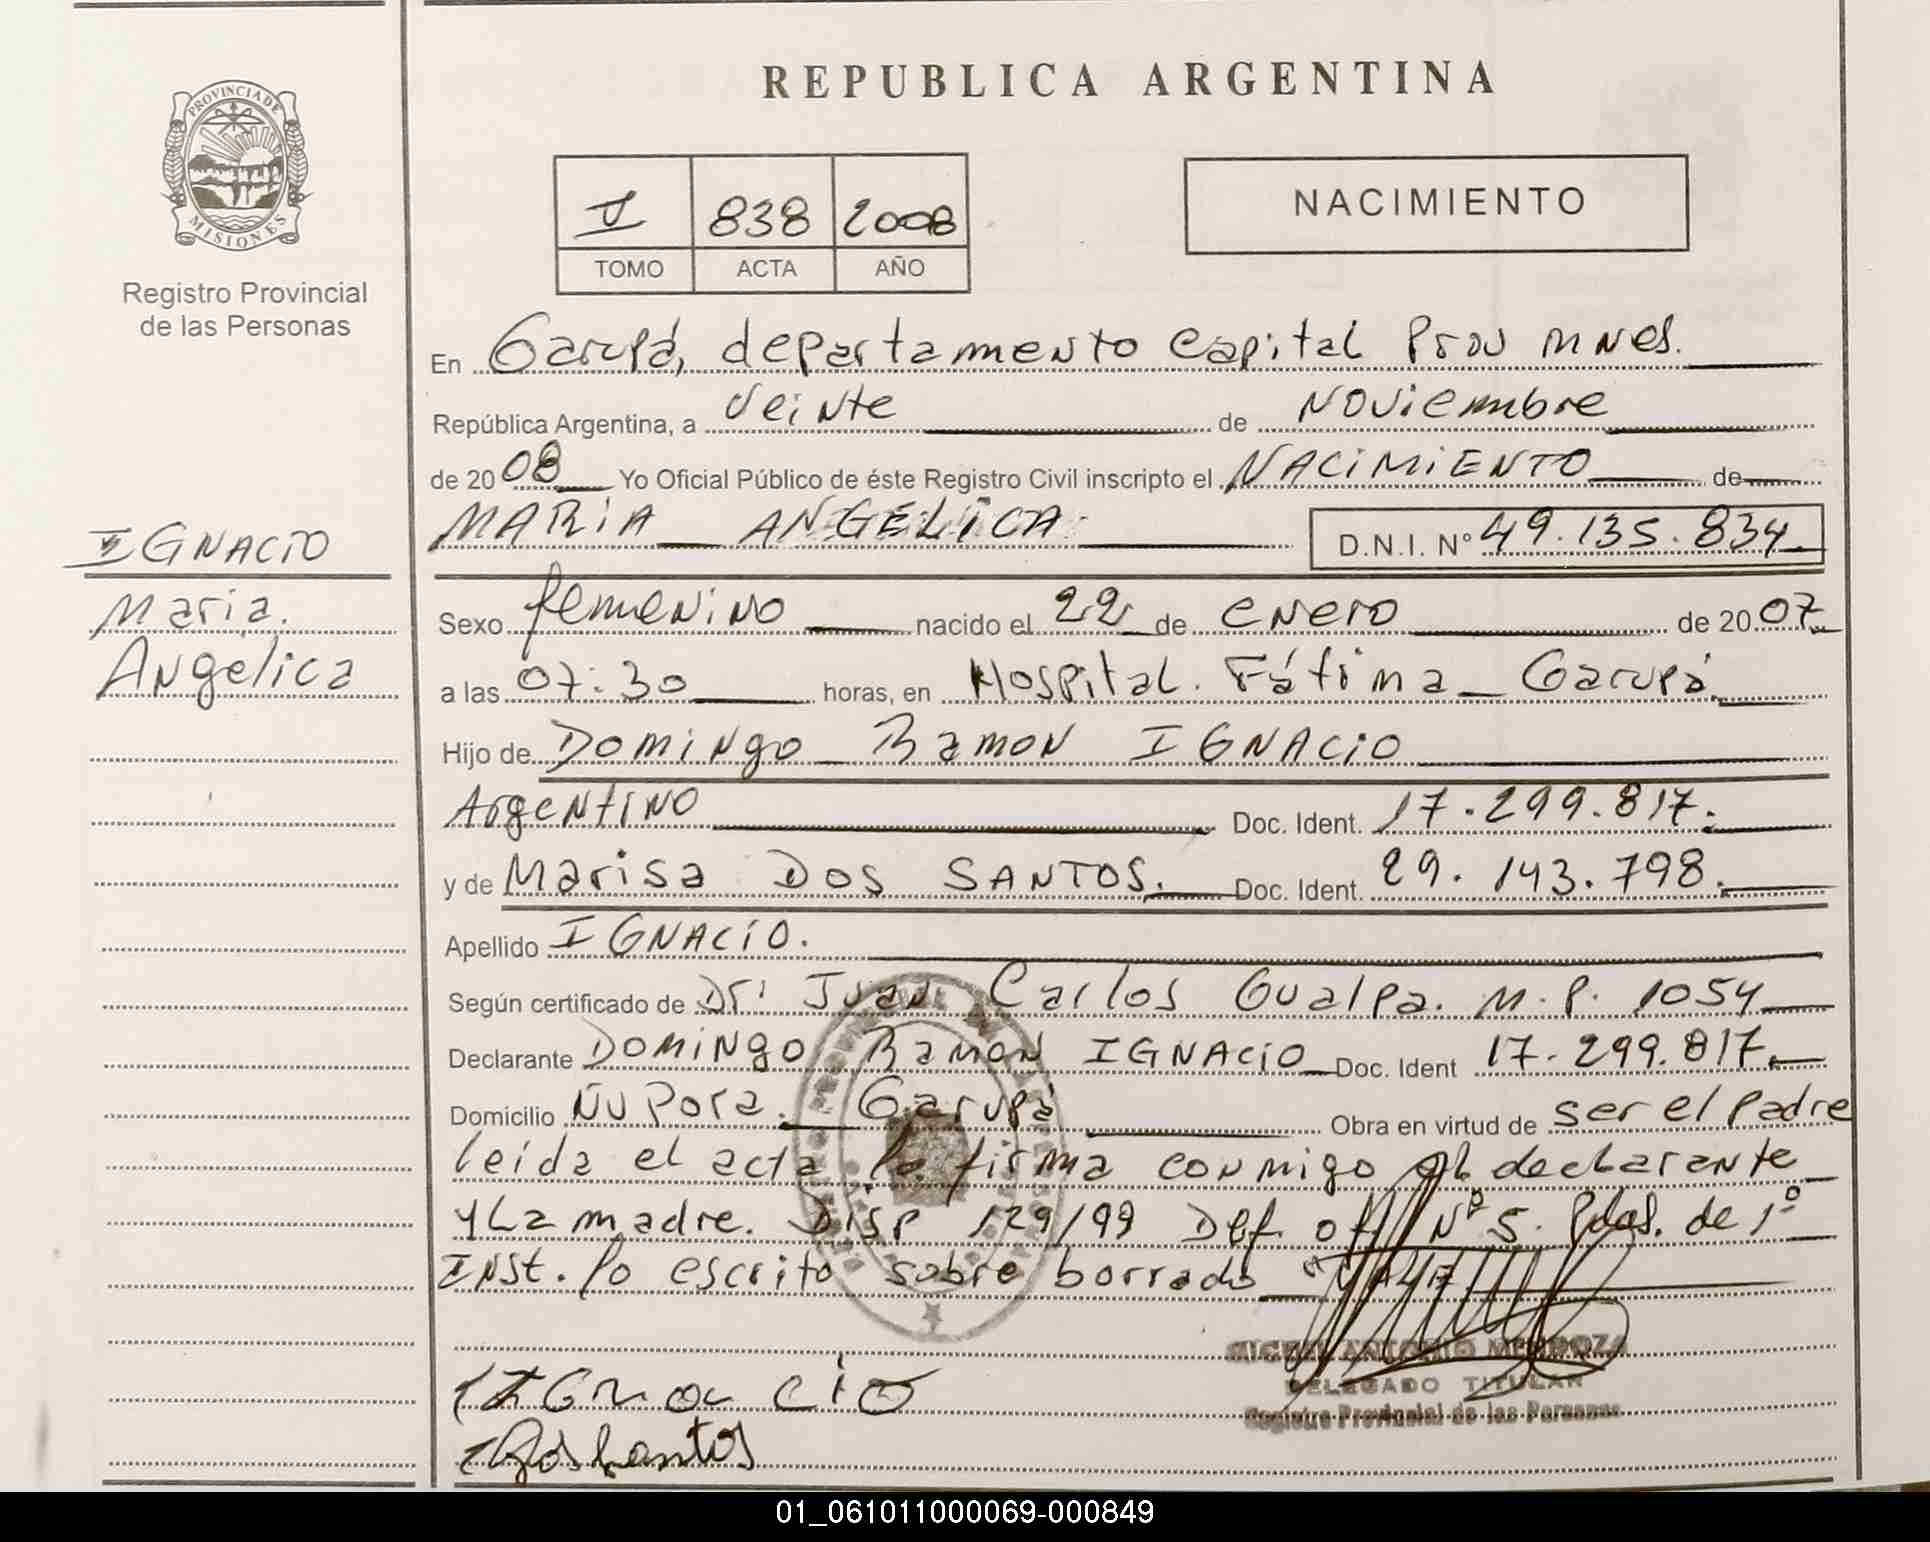 REPUBLICA ARGENTINA
PROVINCIA DE
MISIONES
Registro Provincial
de las Personas
838 2008
TOMO ACTA AÑO
NACIMIENTO
En Garupá, departamento Capital Prov mnes.
República Argentina, a veinte de Noviembre
de 2008 Yo Oficial Público de éste Registro Civil inscripto el NACIMIENTO de
MARIA ANGELICA D.N.I. Nº 49.135.834
IGNACIO
Maria.
Angelica
Sexo femenino nacido el 22 de enero de 2007
a las 07:30 horas, en Hospital. Fátima Garupá
Hijo de Domingo Ramon IGNACIO
Argentino Doc. Ident. 17.299.817.
y de Marisa DOS SANTOS. Doc. Ident. 29.143.798.
Apellido IGNACIO.
Según certificado de Dr. Juan Carlos Gualpa. M.P. 1054
Declarante DOMINGO Ramon IGNACIO Doc. Ident 17.299.817.
Domicilio Ñu Pora. Garupá Obra en virtud de ser el padre
leida el acta la firma conmigo el declarante
y La madre. Disp 129/99 Def. of Nº 5. Pdas. de 1º
Inst. lo escrito sobre borrado
MIGUEL ANTONIO MENDOZA
DELEGADO TITULAR
Registro Provincial de las Personas
IGnacio
Dos Santos
01_061011000069-000849